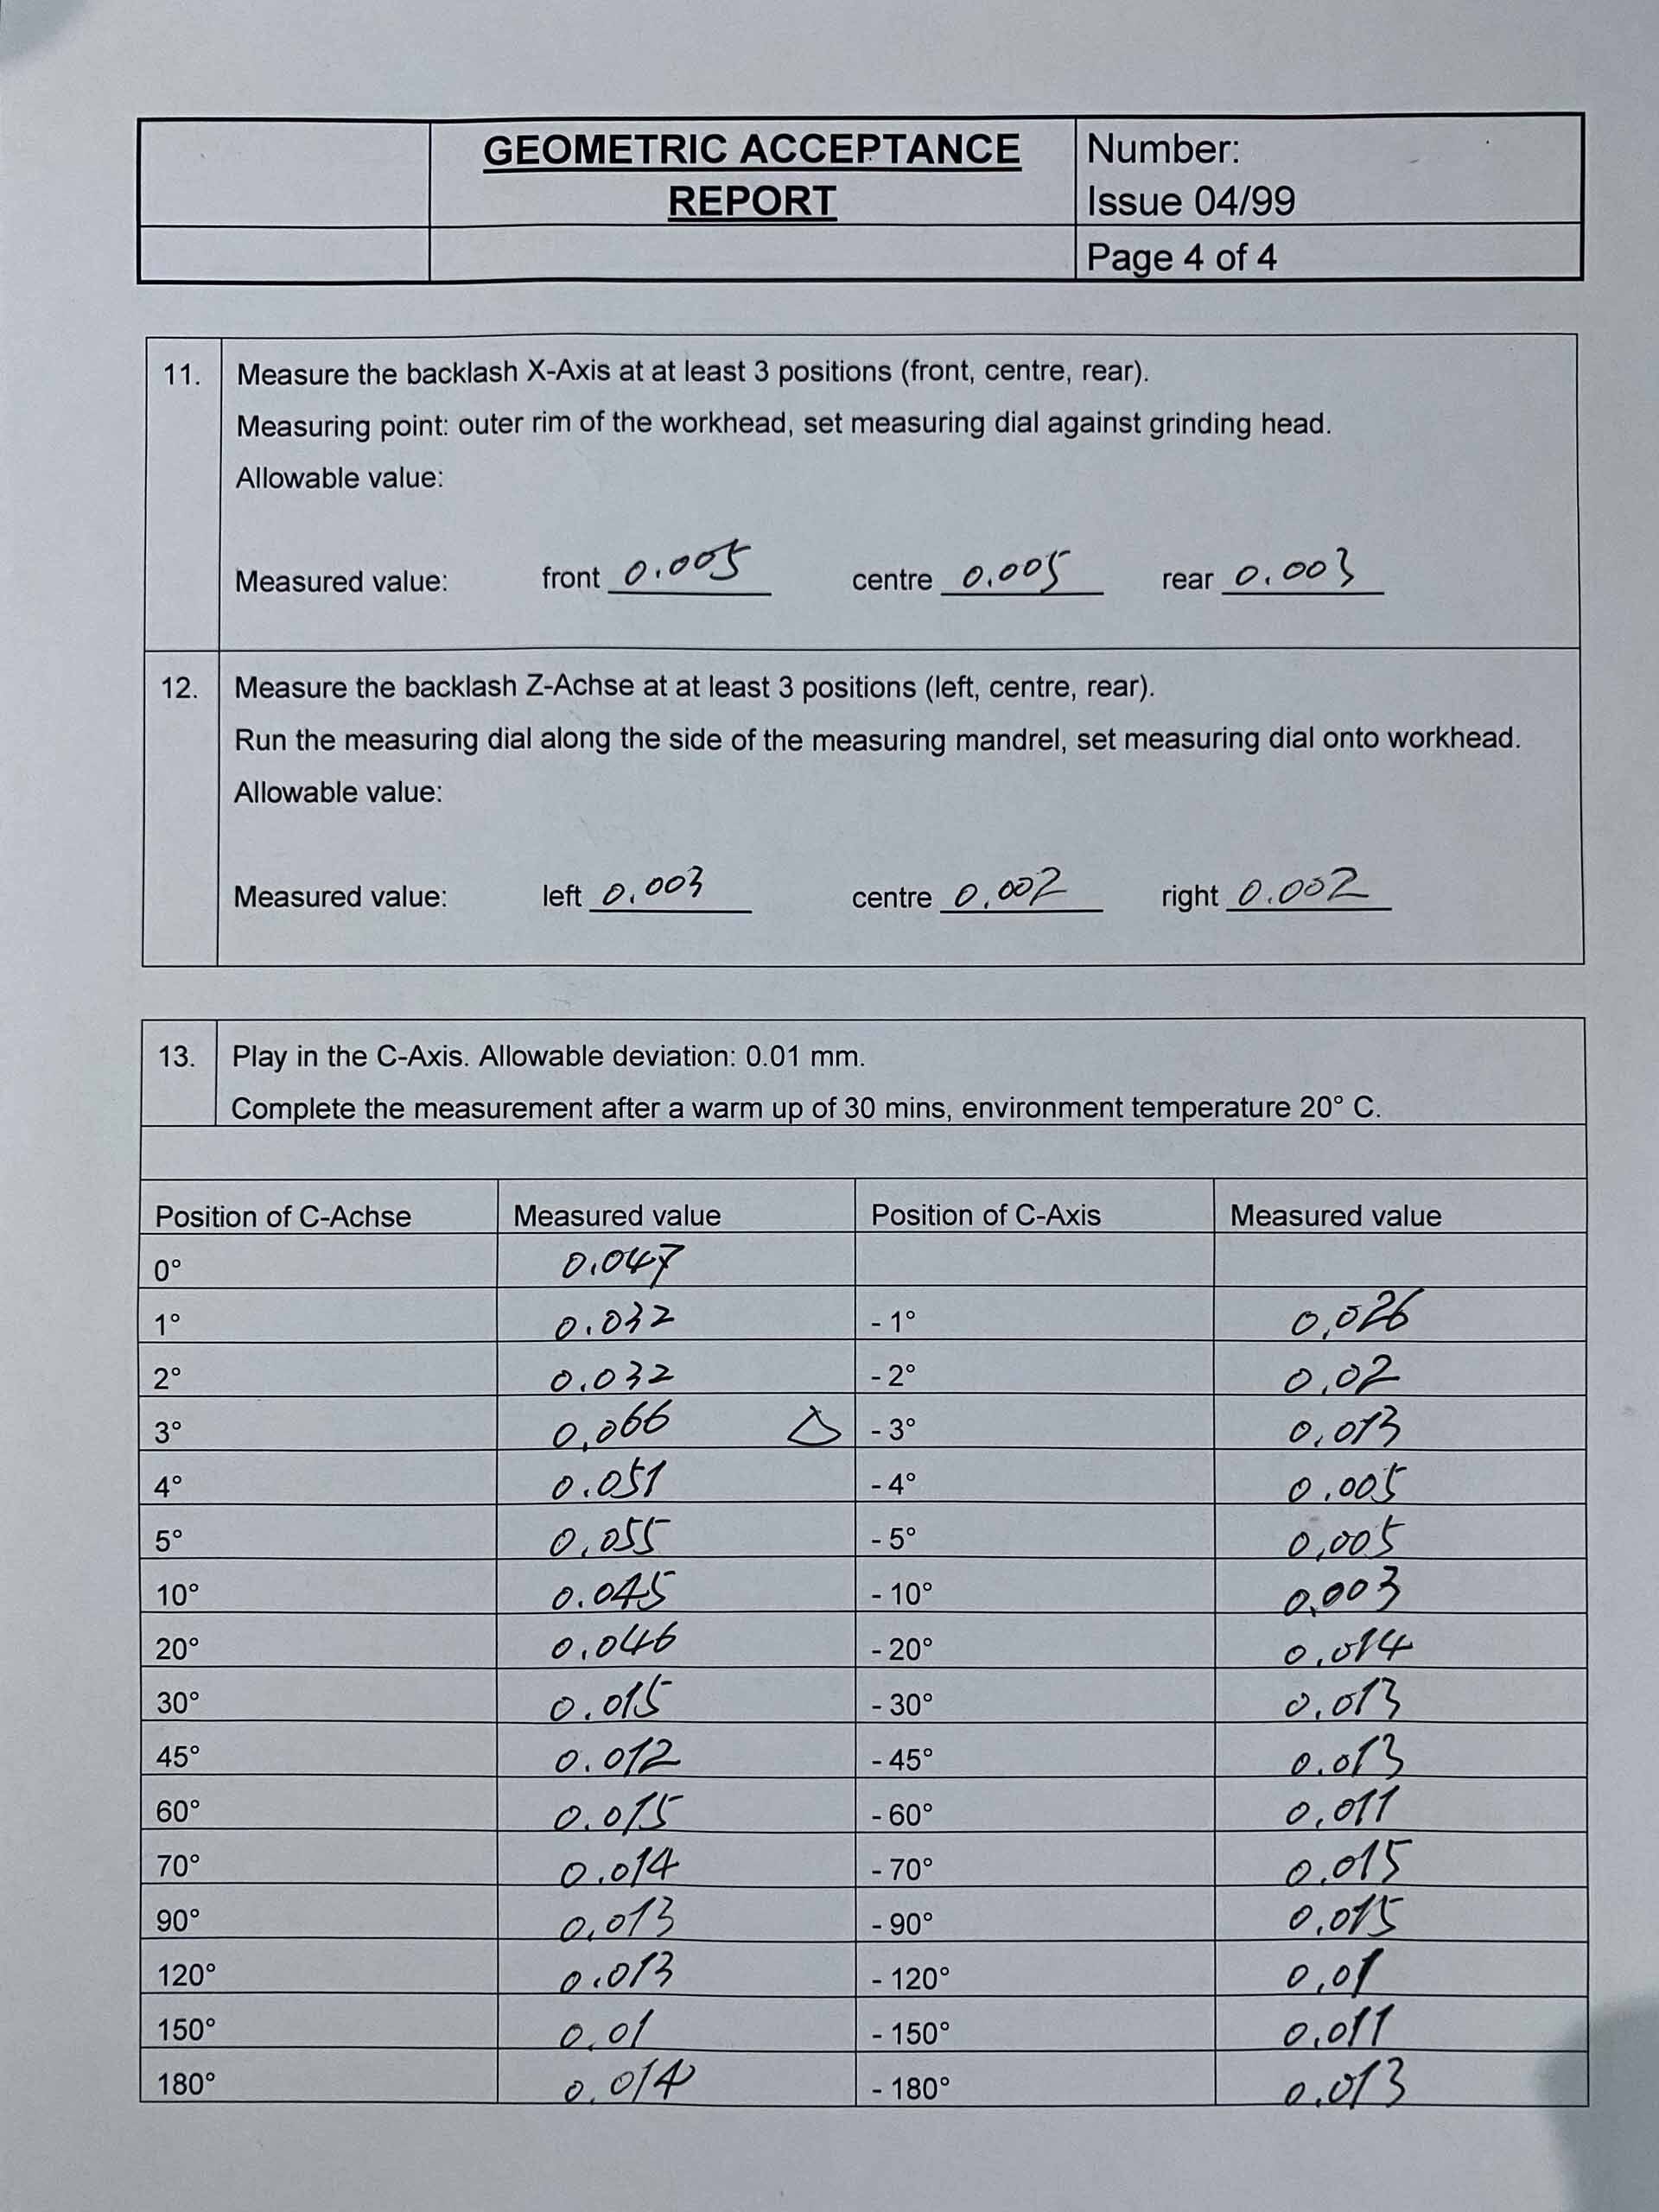 GEOMETRIC ACCEPTANCE
REPORT
Number:
Issue 04/99
Page 4 of 4
11. Measure the backlash X-Axis at at least 3 positions (front, centre, rear).
Measuring point: outer rim of the workhead, set measuring dial against grinding head.
Allowable value:
Measured value: front 0.005 centre 0.005 rear 0.003
12. Measure the backlash Z-Achse at at least 3 positions (left, centre, rear).
Run the measuring dial along the side of the measuring mandrel, set measuring dial onto workhead.
Allowable value:
Measured value: left 0.003 centre 0.002 right 0.002
13. Play in the C-Axis. Allowable deviation: 0.01 mm.
Complete the measurement after a warm up of 30 mins, environment temperature 20° C.
Position of C-Achse Measured value Position of C-Axis Measured value
0° 0.047
1° 0.032 - 1° 0.026
2° 0.032 - 2° 0.02
3° 0.066 △ - 3° 0.013
4° 0.051 - 4° 0.005
5° 0.055 - 5° 0.005
10° 0.045 - 10° 0.003
20° 0.046 - 20° 0.014
30° 0.015 - 30° 0.013
45° 0.012 - 45° 0.013
60° 0.015 - 60° 0.011
70° 0.014 - 70° 0.015
90° 0.013 - 90° 0.015
120° 0.013 - 120° 0.01
150° 0.01 - 150° 0.011
180° 0.014 - 180° 0.013